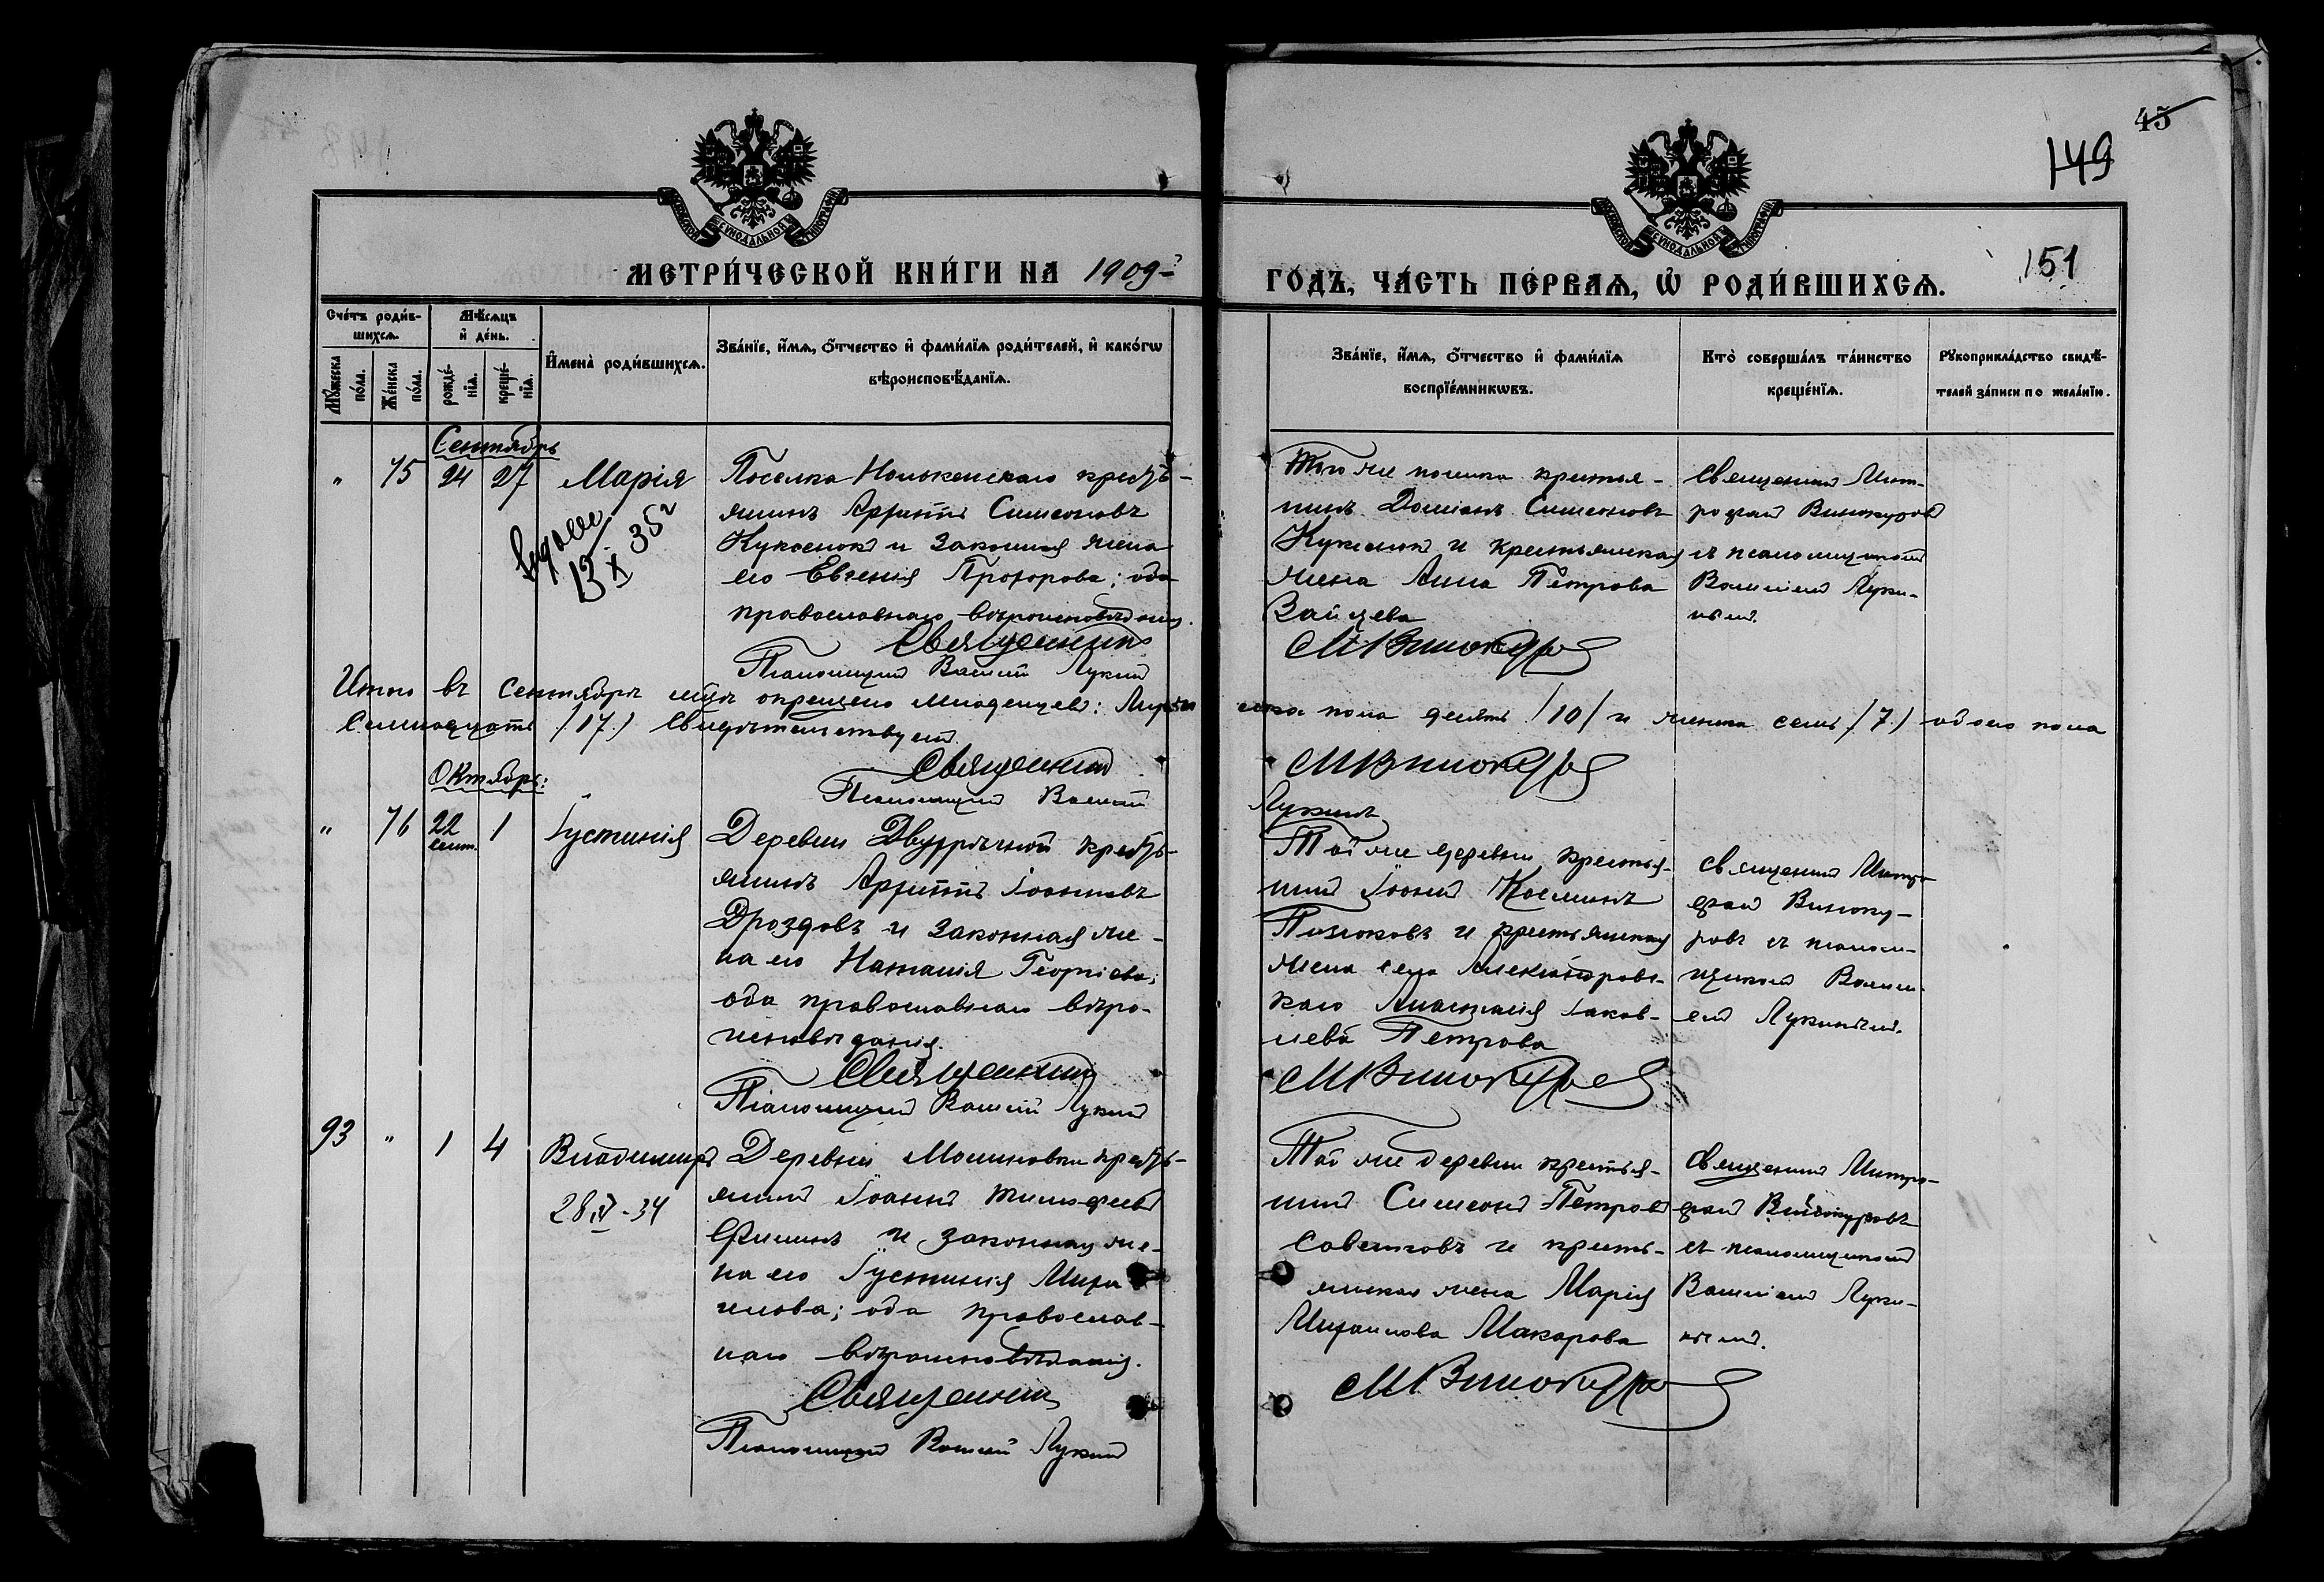 45
149
151
МЕТРИ́ЧЕСКОЙ КНИ́ГИ НА 1909-
ГО́ДЪ, ЧА́СТЬ ПЕ́РВАѦ, Ѽ РОДИ́ВШИХСѦ.
Сче́тъ роди́в-
шихсѧ.
Мѣ́сѧцъ
и҆ де́нь.
Мꙋ́жеска
по́ла.
Же́нска
по́ла.
рожде́-
нїѧ.
креще́-
нїѧ.
И҆мена̀ роди́вшихсѧ.
Зва́нїе, и҆́мѧ, ѻ҆́тчество и҆ фами́лїѧ роди́телей, и҆ како́гѡ
вѣроисповѣ́данїѧ.
Зва́нїе, и҆́мѧ, ѻ҆́тчество и҆ фами́лїѧ
воспрїе́мникѡвъ.
Кто̀ соверша́лъ та́инство
креще́нїѧ.
Рꙋкоприкла́дство свидѣ́-
телей за́писи по жела́нїю.
Сентябрь
" 75 24 27 Марія
13 X 35
Поселка кресть-
янинъ Симеоновъ
и законная жена
его Евгенія Прохорова; оба
православнаго вѣроисповѣданія.
Священникъ
Псаломщикъ Василій Лукинъ
Того же поселка крестья-
нинъ Симеоновъ
и крестьянская
жена Анна Петрова
Зайцева
МВинокуров
Священникъ Мит-
рофанъ Винокуровъ
съ псаломщикомъ
Василіемъ Луки-
нымъ.
Итого въ Сентябрѣ мѣсяцѣ окрещено младенцевъ: Мужеска пола десять /10/ и женска семь /7./ обоего пола
Семнадцать /17./ Свидѣтельствуемъ.
Священникъ МВинокуров
Псаломщикъ Василій Лукинъ
Октябрь:
" 76 22 сент. 1 Іустинія
Деревни Двухрѣчной кресть-
янинъ Іоанновъ
Дроздовъ и законная же-
на его Наталія Георгіева;
оба православнаго вѣро-
исповѣданія.
Священникъ
Псаломщикъ Василій Лукинъ
Той же деревни крестья-
нинъ Іоаннъ Косминъ
и крестьянская
жена села Александровс-
каго Анастасія Іаков-
лева Петрова
МВинокуров
Священникъ Митро-
фанъ Виноку-
ровъ съ псалом-
щикомъ Василі-
емъ Лукинымъ.
93 " 1 4 Владиміръ
28.IV-34
Деревни кресть-
янинъ Іоаннъ Тимофеевъ
и законная же-
на его Іустинія Миха
илова; оба православ-
наго вѣроисповѣданія.
Священникъ
Псаломщикъ Василій Лукинъ
Той же деревни крестья-
нинъ Симеонъ Петровъ
Совѣтковъ и кресть-
янская жена Марія
Михаилова Макарова
МВинокуров
Священникъ Митро-
фанъ Винокуровъ
съ псаломщикомъ
Василіемъ Луки-
нымъ.